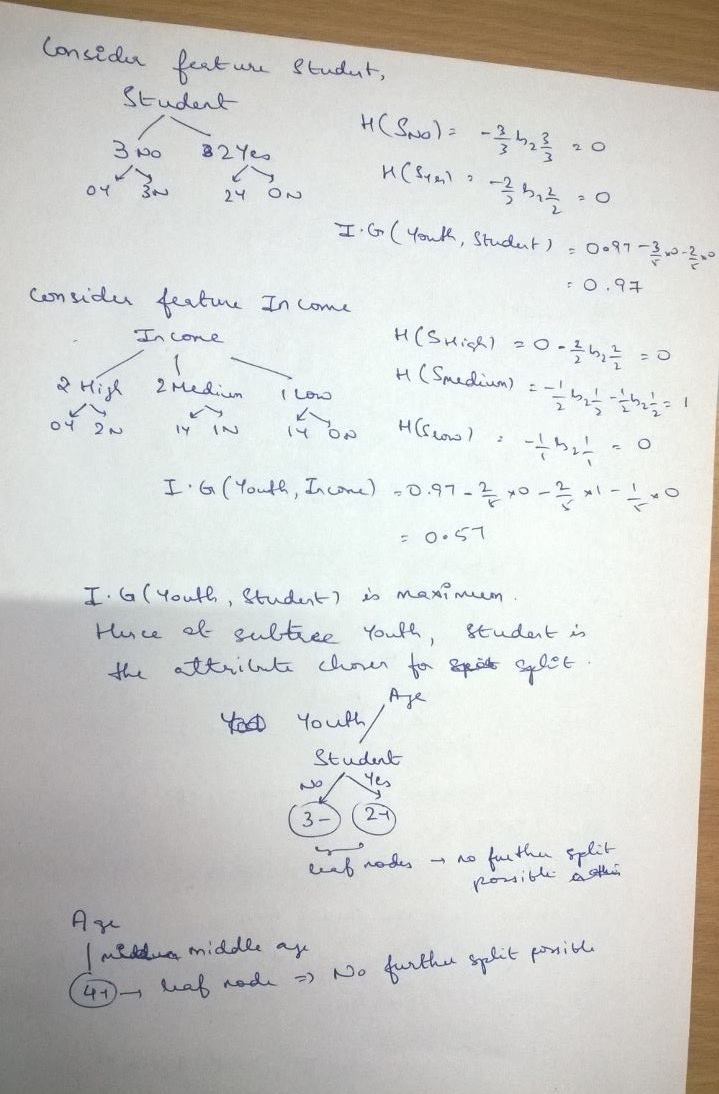 Consider feature Student,
Student
3 No 2 Yes
0Y 3N 2Y 0N
H(S_No) = -3/3 log_2 3/3 = 0
H(S_Yes) = -2/2 log_2 2/2 = 0
I.G(Youth, Student) = 0.97 - 3/5 x0 - 2/5 x0
= 0.97
Consider feature Income
Income
2 High 2 Medium 1 Low
0Y 2N 1Y 1N 1Y 0N
H(S_High) = 0 - 2/2 log_2 2/2 = 0
H(S_medium) = -1/2 log_2 1/2 - 1/2 log_2 1/2 = 1
H(S_low) = -1/1 log_2 1/1 = 0
I.G(Youth, Income) = 0.97 - 2/5 x0 - 2/5 x1 - 1/5 x0
= 0.57
I.G(Youth, Student) is maximum.
Hence at subtree Youth, Student is
the attribute chosen for split.
Age
Youth
Student
No Yes
3- 2+
leaf nodes → no further split
possible
Age
middle age
4+ → leaf node => No further split possible